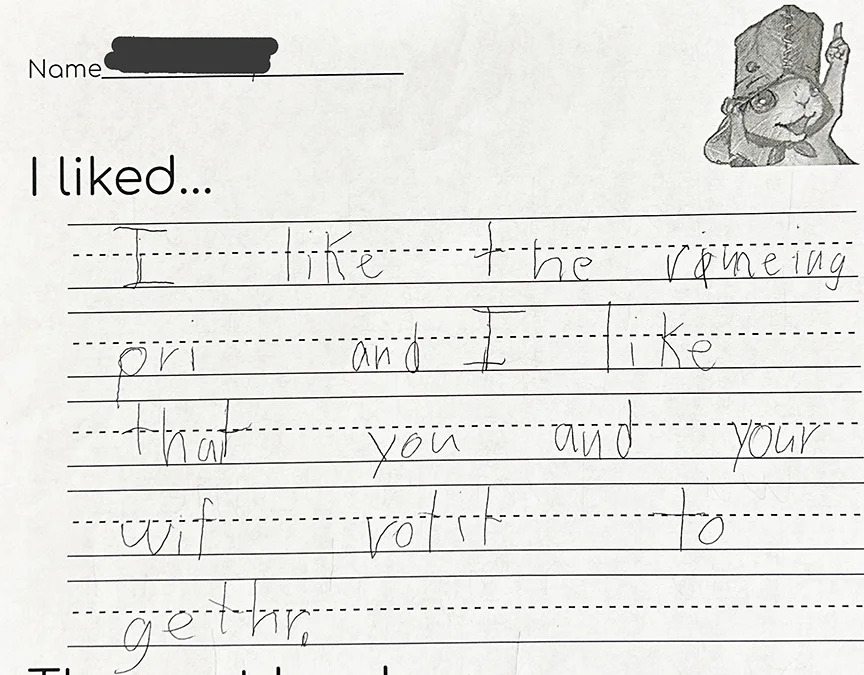 Name
I liked...
I like the romeing
pri and I like
that you and your
wif rotit to
gethr.